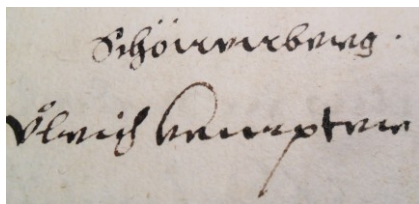 Schönenberg.
Ulrich kempter